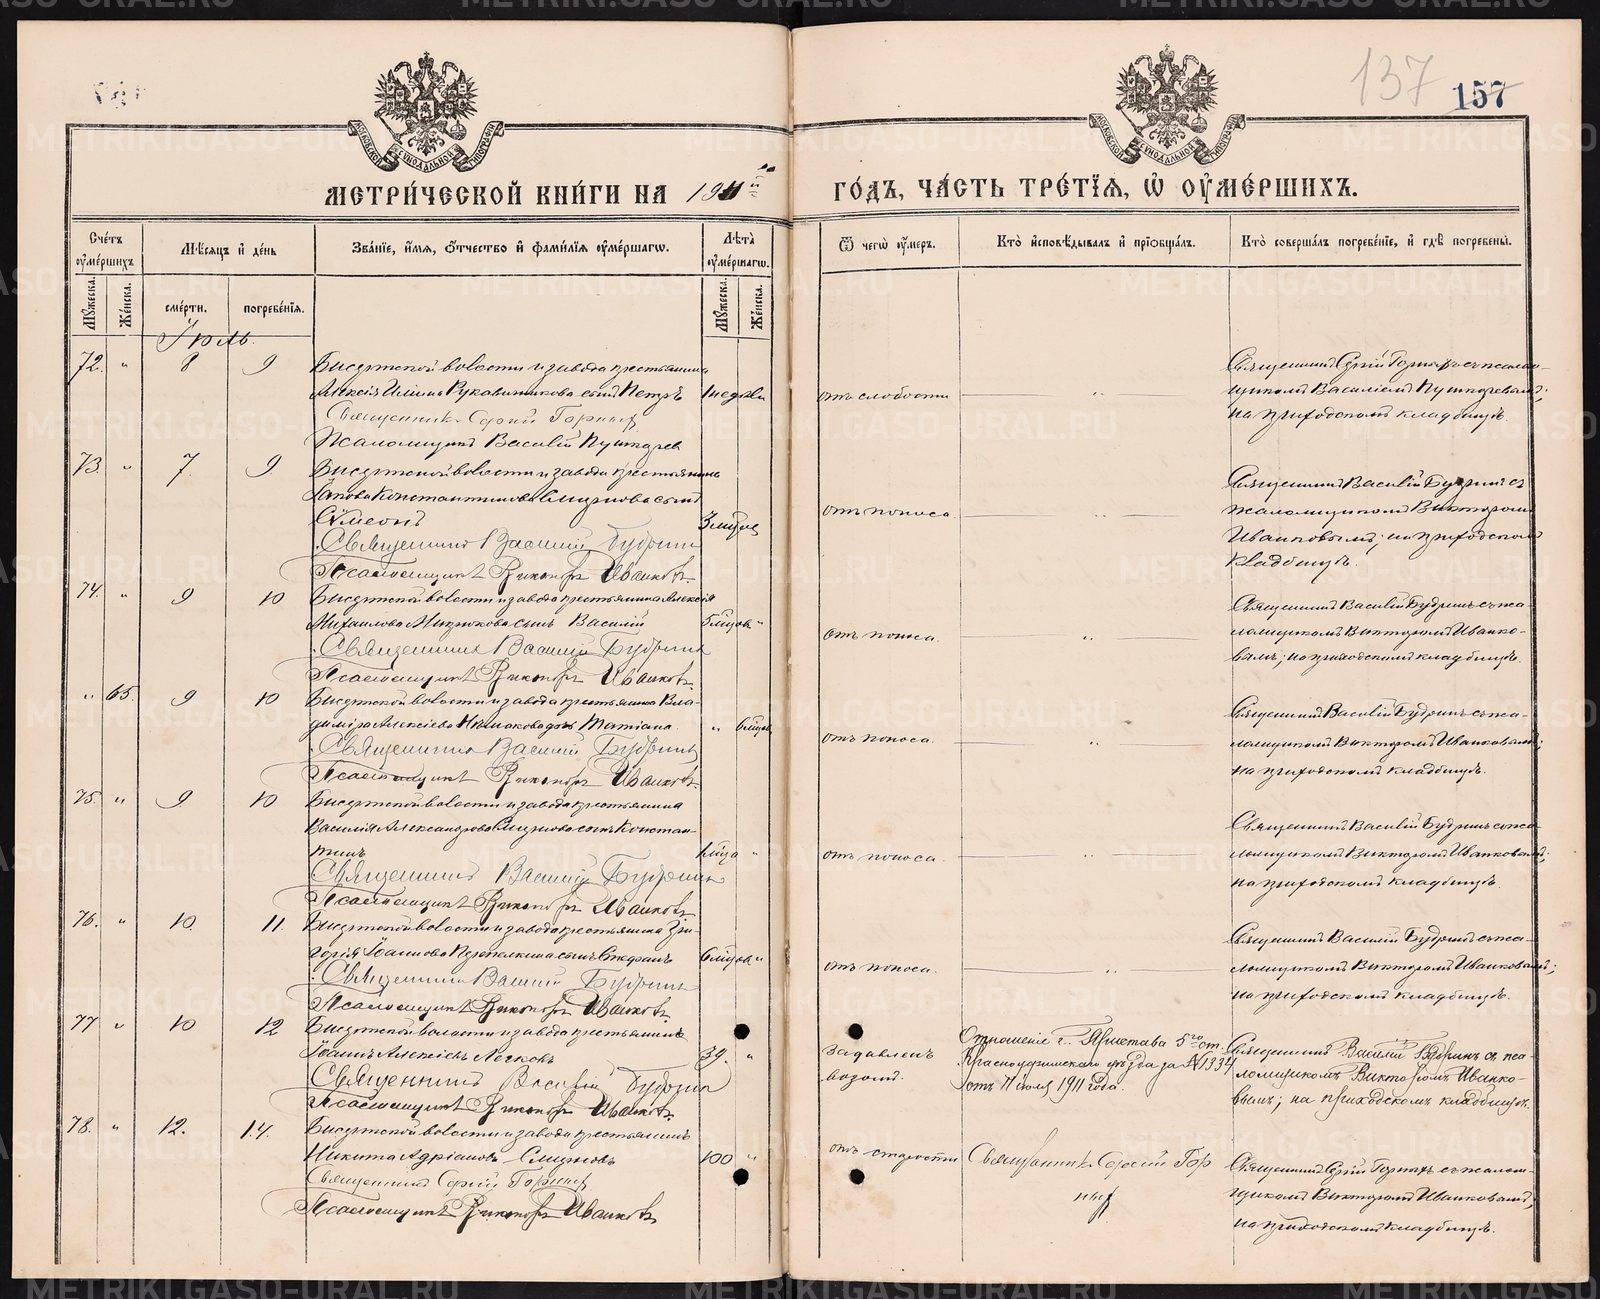 137
157
МЕТРИ́ЧЕСКОЙ КНИ́ГИ НА 1911
ГО́ДЪ, ЧА́СТЬ ТРЕ́ТЇѦ, Ѽ ОУМЕ́РШИХЪ.
Счетъ оумершихъ
Мѣсяцъ и день
Званїе, имя, отчество и фамилїя оумершагѡ.
Лѣта оумершагѡ.
Ѿ чегѡ оумеръ.
Кто исповѣдывалъ и прїобщалъ.
Кто совершалъ погребенїе, и гдѣ погребены.
Мужеска.
Женска.
смерти.
погребенїя.
Мужеска.
Женска.
Іюль.
72. " 8 9
Бисертской волости и завода крестьянина
Алексія Ильина Рукавишникова сынъ Петръ
Священникъ Сергій Горныхъ
Псаломщикъ Василій Пушкарев
отъ слабости
Священникъ Сергій Горныхъ съ псалом-
щикомъ Василіемъ Пушкаревымъ;
на приходскомъ кладбищѣ.
73 " 7 9
Бисертской волости и завода крестьянина
Іакова Константинова Смирнова сынъ
Сѵмеонъ
3 мѣсяц
Священникъ Василій Будринъ
Псаломщикъ Викторъ Иванковъ
отъ поноса.
Священникъ Василій Будринъ съ
псаломщикомъ Викторомъ
Иванковымъ; на приходскомъ
кладбищѣ.
74. " 9 10
Бисертской волости и завода крестьянина Алексія
Михаилова сынъ Василій
Священникъ Василій Будринъ
Псаломщикъ Викторъ Иванковъ.
отъ поноса.
Священникъ Василій Будринъ съ пса-
ломщикомъ Викторомъ Иванко-
вымъ; на приходскомъ кладбищѣ.
" 65. 9 10
Бисертской волости и завода крестьянина Вла-
диміра Алексіева дочь Татіана.
" 6 мѣсяц
Священникъ Василій Будринъ
Псаломщикъ Викторъ Иванковъ.
отъ поноса.
Священникъ Василій Будринъ съ пса-
ломщикомъ Викторомъ Иванковымъ;
на приходскомъ кладбищѣ.
75. " 9 10
Бисертской волости и завода крестьянина
Василія Александрова Смирнова сынъ Констан-
тинъ
Священникъ Василій Будринъ
Псаломщикъ Викторъ Иванковъ.
отъ поноса.
Священникъ Василій Будринъ съ пса-
ломщикомъ Викторомъ Иванковымъ;
на приходскомъ кладбищѣ.
76. " 10. 11.
Бисертской волости и завода крестьянина Гри-
горія Іоаннова сынъ Стефанъ
Священникъ Василій Будринъ
Псаломщикъ Викторъ Иванковъ.
отъ поноса.
Священникъ Василій Будринъ съ пса-
ломщикомъ Викторомъ Иванковымъ;
на приходскомъ кладбищѣ.
77 " 10 12
Бисертской волости и завода крестьянинъ
Іоаннъ Алексіевъ
39. "
Священникъ Василій Будринъ
Псаломщикъ Викторъ Иванковъ.
Задавленъ
возомъ.
Отношеніе г. Пристава 5го ст.
Красноуфимскаго уѣзда за № 1334
отъ 11 іюля 1911 года.
Священникъ Василій Будринъ съ пса-
ломщикомъ Викторомъ Иванко-
вымъ; на приходскомъ кладбищѣ.
78. " 12. 14.
Бисертской волости и завода крестьянинъ
Никита Адріановъ Смирновъ
100 "
Священникъ Сергій Горныхъ
Псаломщикъ Викторъ Иванковъ
отъ старости
Священникъ Сергій Гор
ныхъ
Священникъ Сергій Горныхъ съ псалом-
щикомъ Викторомъ Иванковымъ;
на приходскомъ кладбищѣ.
METRIKI.GASO-URAL.RU